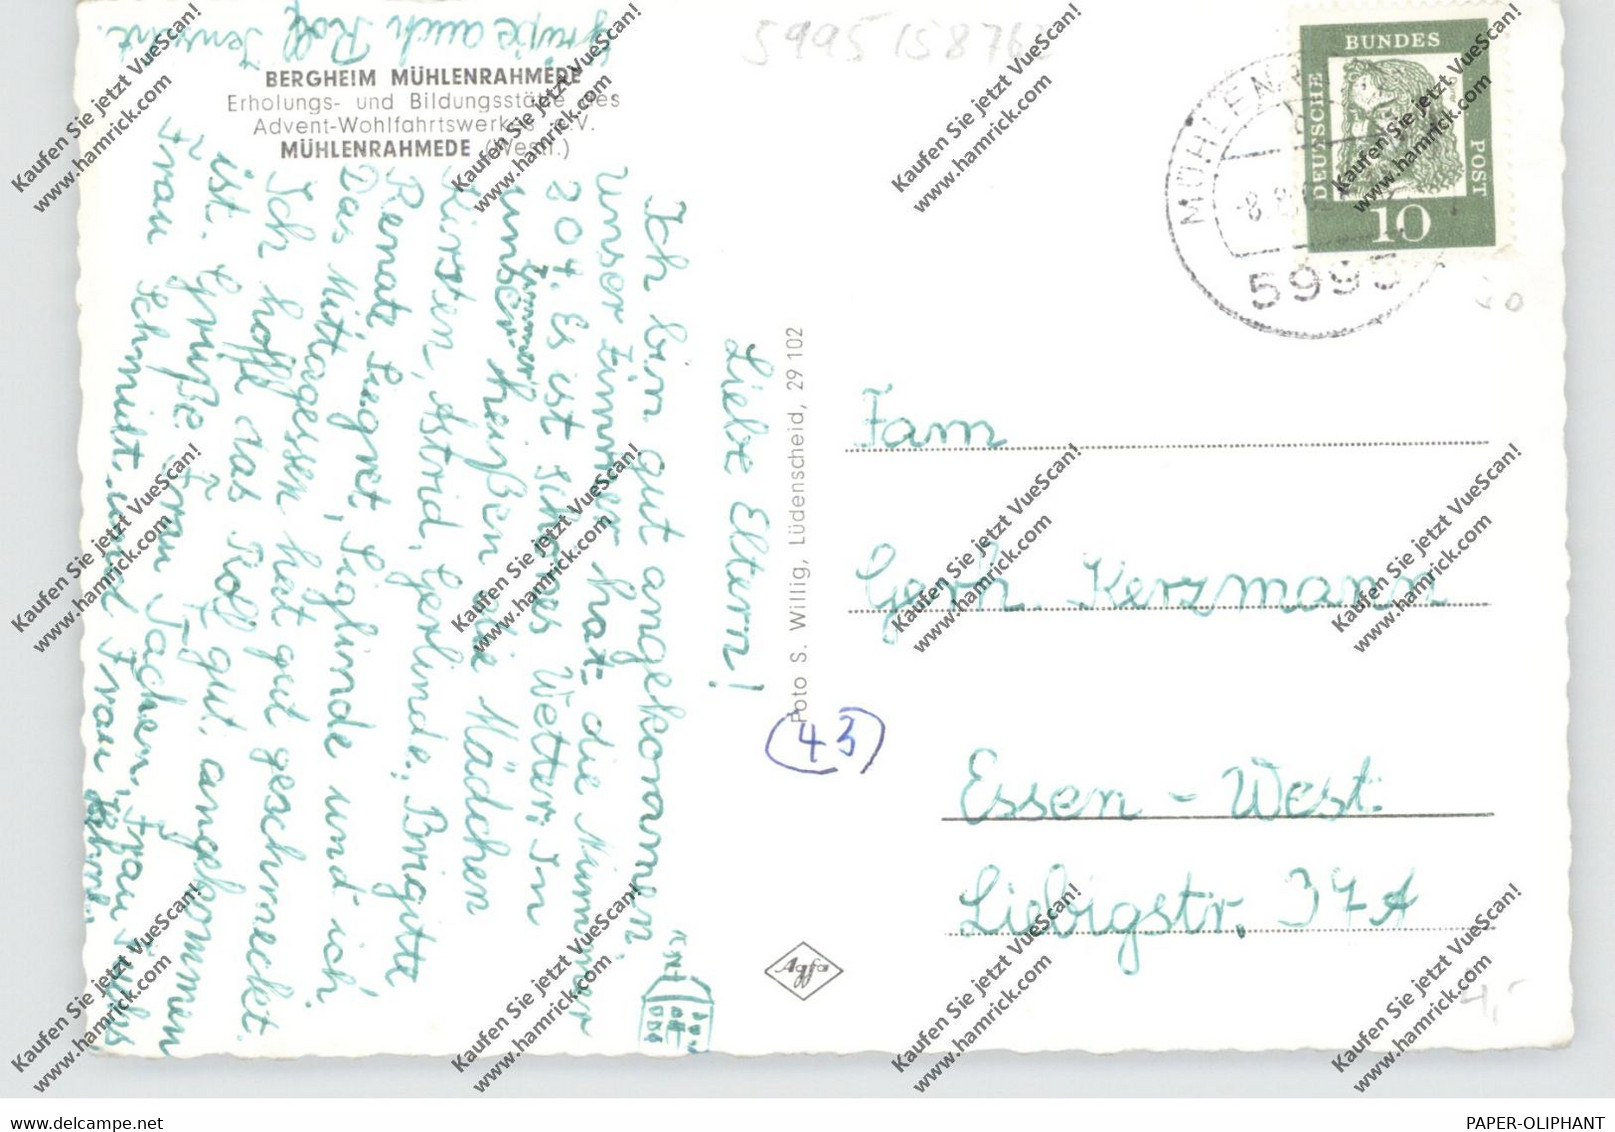 BERGHEIM MÜHLENRAHMEDE
Erholungs- und Bildungsstätte des
Advent-Wohlfahrtswerkes e.V.
MÜHLENRAHMEDE (Westf.)
Liebe Eltern!
Ich bin gut angekommen.
Unser Zimmer hat die Nummer
204. Es ist schönes Wetter. In
unser Zimmer heißen die Mädchen
Kirsten, Astrid, Gerlinde, Brigitte
Renate, Sieglinde und ich.
Das Mittagessen hat gut geschmeckt.
Ich hoffe das Rolf gut angekommen
ist. Grüße Frau Jachen, Frau
Frau Schmidt und Frau
Grüße auch Rolf
Foto S. Willig, Lüdenscheid, 29 102
Agfa
43
5995 15876
DEUTSCHE BUNDESPOST
10
MÜHLEN
8. 8.
5995
Fam
Gerh. Kerzmann
Essen-West
Liebigstr. 37A
4,-
Kaufen Sie jetzt VueScan!
www.hamrick.com
www.delcampe.net
PAPER-OLIPHANT